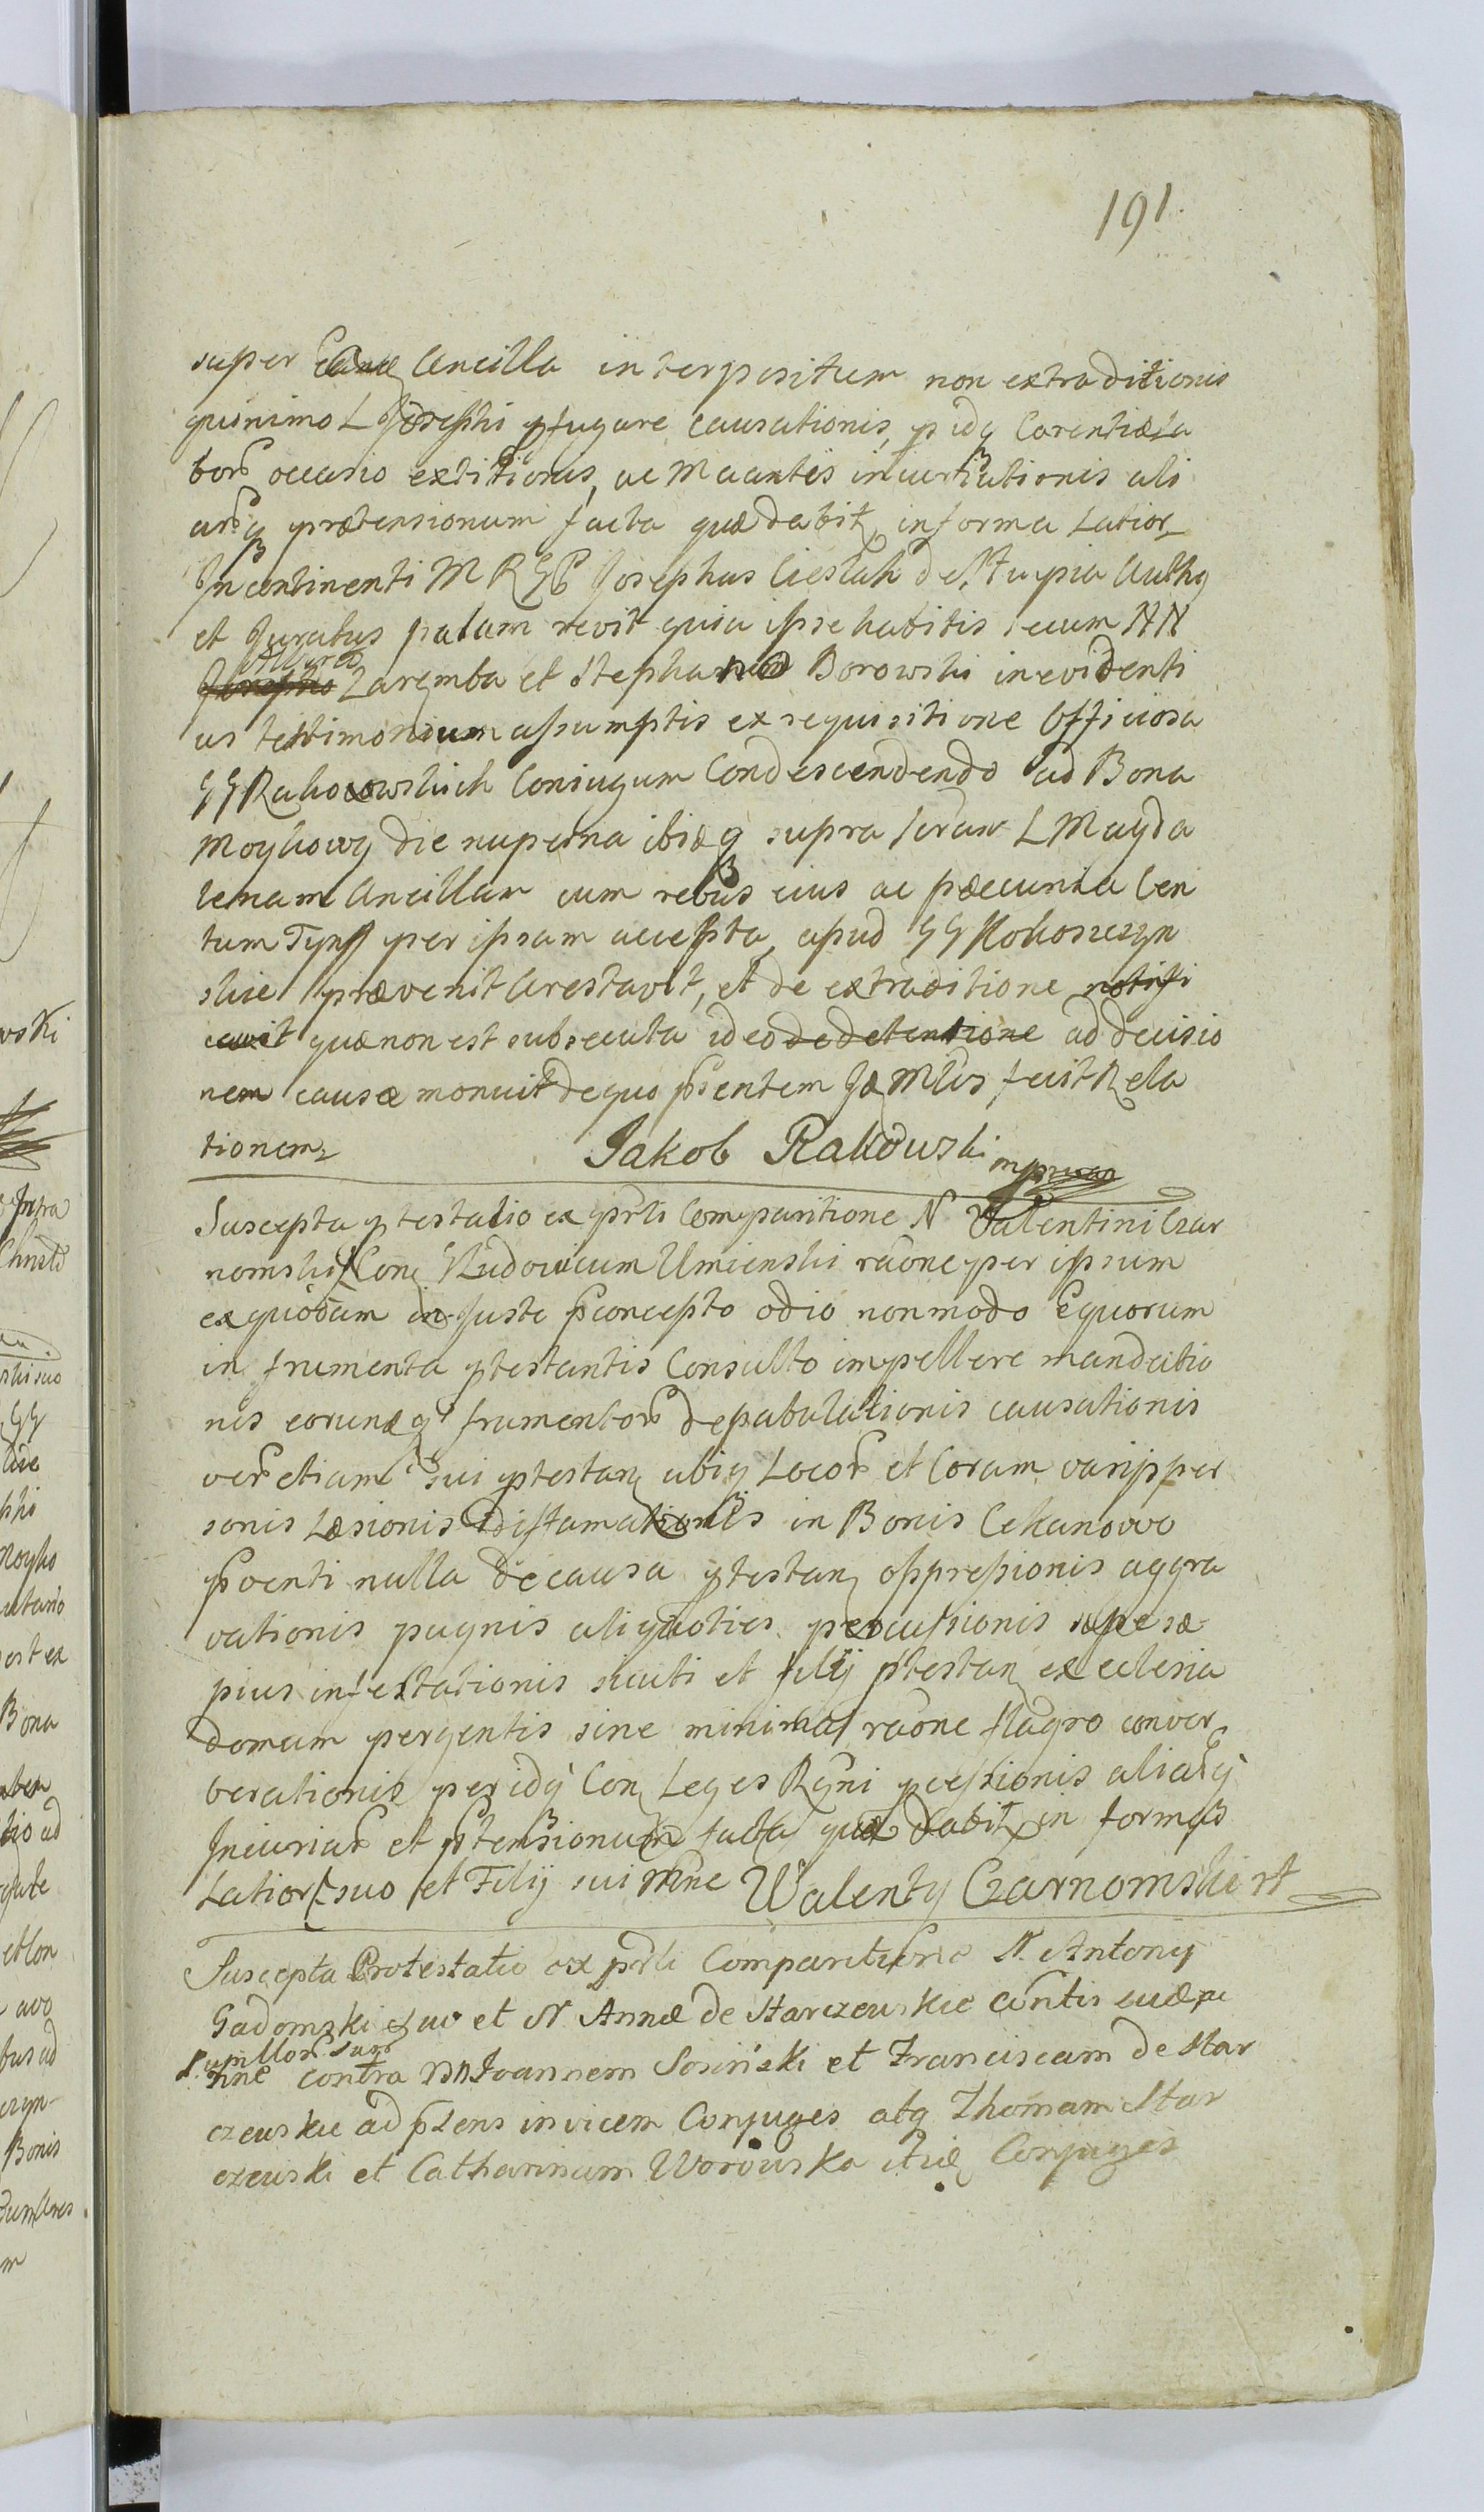 191.
super Ancilla interpositum non extraditionis
quinimo L Josephi pfugare causationis, p idq Carentiæ La
borũ occasio extitionis, ac Maantis incurtiationis ali
arũq prætensionum facta quæ dabit, in forma Latior
In continenti M R G Josephus Cieslak de Stupia Auth
et Juratus palam revit quia ipse habitis secum NN
Zaremba et Stephano Borowski in evidenti
us testimonium assumptis ex requisitione Officiosa
GG Rakowskich Coniugum Condescendendo ad Bona
Moykowy die nuperna ibiq supra scram L Magda
lenam Ancillam cum rebus eius ac pæcunia Cen
tum Tynff per ipsam accepta, apud GG Kokoszczyn
skie prævenit Arestavit, et de extraditione notifi
cavit quæ non est subsecuta ideo de detentione ad decisio
nem causæ monuit de quo psentem Mlis fecit Rela
tionem
Jakob Rakowski mp
Suscepta ptestatio ex psli Comparitione N Valentini Czar
nomski Con Ludovicum Umienski raone per ipsum
ex quodam injuste pconcepto odio non modo Equorum
in frumenta ptestantis Consulto impellere mandatio
nis eorumq frumentorũ depabulationis causationis
verũ etiam sui ptestan ubiq Locorũ et Coram varijs per
sonis Læsionis diffamationis in Bonis Cekanowo
pventi nulla de causa ptestan oppressionis aggra
vationis pugnis aliquoties percussionis sæpe sæ
pius infestationis sicuti et filij ptestan ex eclesia
domum pergentis sine minima raone flagro conver
berationis per idq Con Leges Rgni pcessionis aliarũq
Injuriarũ et ptensionum facta quæ dabit, in forma
Latiori suo et Filij sui nne Walenty Czarnomski st
Suscepta Protestatio ex psli Comparitione N. Antony
Gadomski suo et N. Annæ de Starczewskie
Pupillorũ suorũ
nne contra NN Joannem Sosinski et Franciscam de Star
czewskie ad psens invicem Conjuges atq Thomam Star
czewski et Catharinam Worowska Conjuges